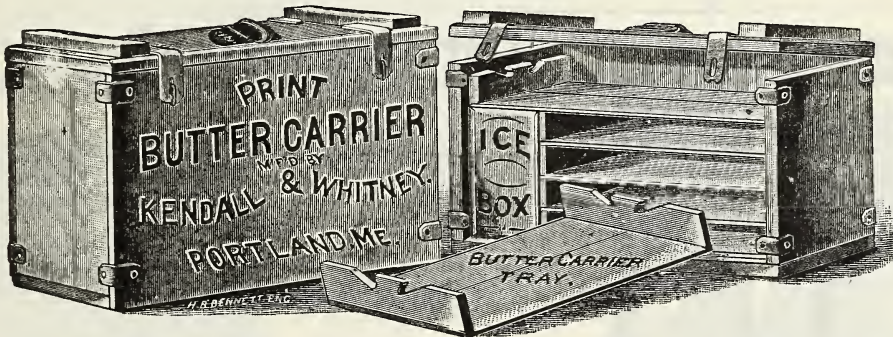 PRINT
BUTTER CARRIER
M'F'D BY
KENDALL & WHITNEY.
PORTLAND, ME.
H.R. BENNETT ENG.
ICE
BOX
BUTTER CARRIER
TRAY.